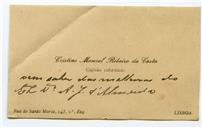 Cristino Manoel Ribeiro da Costa
Capitão reformado
vem saber das melhoras do
Ex.º Sr. A. J. d'Almeida
Rua de Santa Marta, 142, 2.º, Esq.
LISBOA